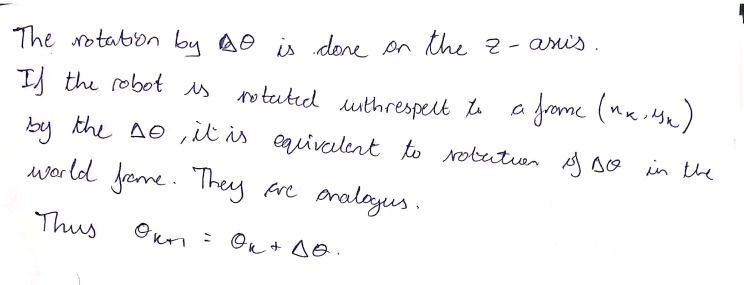 The rotation by Δθ is done on the z-axis.
If the robot is rotated withrespect to a frame (xₖ, yₖ)
by the Δθ, it is equivalent to rotation of Δθ in the
world frame. They are analogus.
Thus θₖ₊₁ = θₖ + Δθ.